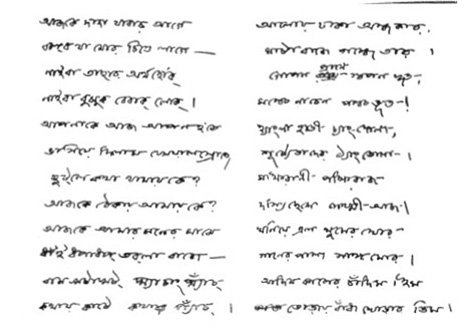 আজকে দাদা যাবার আগে
বলব যা মোর চিত্তে লাগে —
নাইবা তাহার অর্থ হোক্
নাইবা বুঝুক বেবাক্ লোক্ ।
আপনাকে আজ আপন হতে
ভাসিয়ে দিলাম খেয়ালস্রোতে
ছুট্‌লে কথা থামায় কে?
আজকে ঠেকায় আমায় কে?
আজকে আমার মনের মাঝে
ধাঁই ধপাধপ্ তবলা বাজে —
রাম খটাখট্ ঘ্যাচাং ঘ্যাঁচ্
কথায় কাটে কথার প্যাঁচ্ ।
আলোয় ঢাকা অন্ধকার,
ঘন্টা বাজে গন্ধে তার ।
গোপন প্রাণে স্বপন দূত,
মঞ্চে নাচেন পঞ্চ ভূত !
হ্যাংলা হাতী চ্যাং দোলা,
শূন্যে তাদের ঠ্যাং তোলা ।
মক্ষিরাণী পক্ষিরাজ
দস্যি ছেলে লক্ষ্মী আজ ।
ঘনিয়ে এল ঘুমের ঘোর
গানের পালা সাঙ্গ মোর ।
আদিম কালের চাঁদিম হিম
তোড়ায় বাঁধা ঘোড়ার ডিম ।